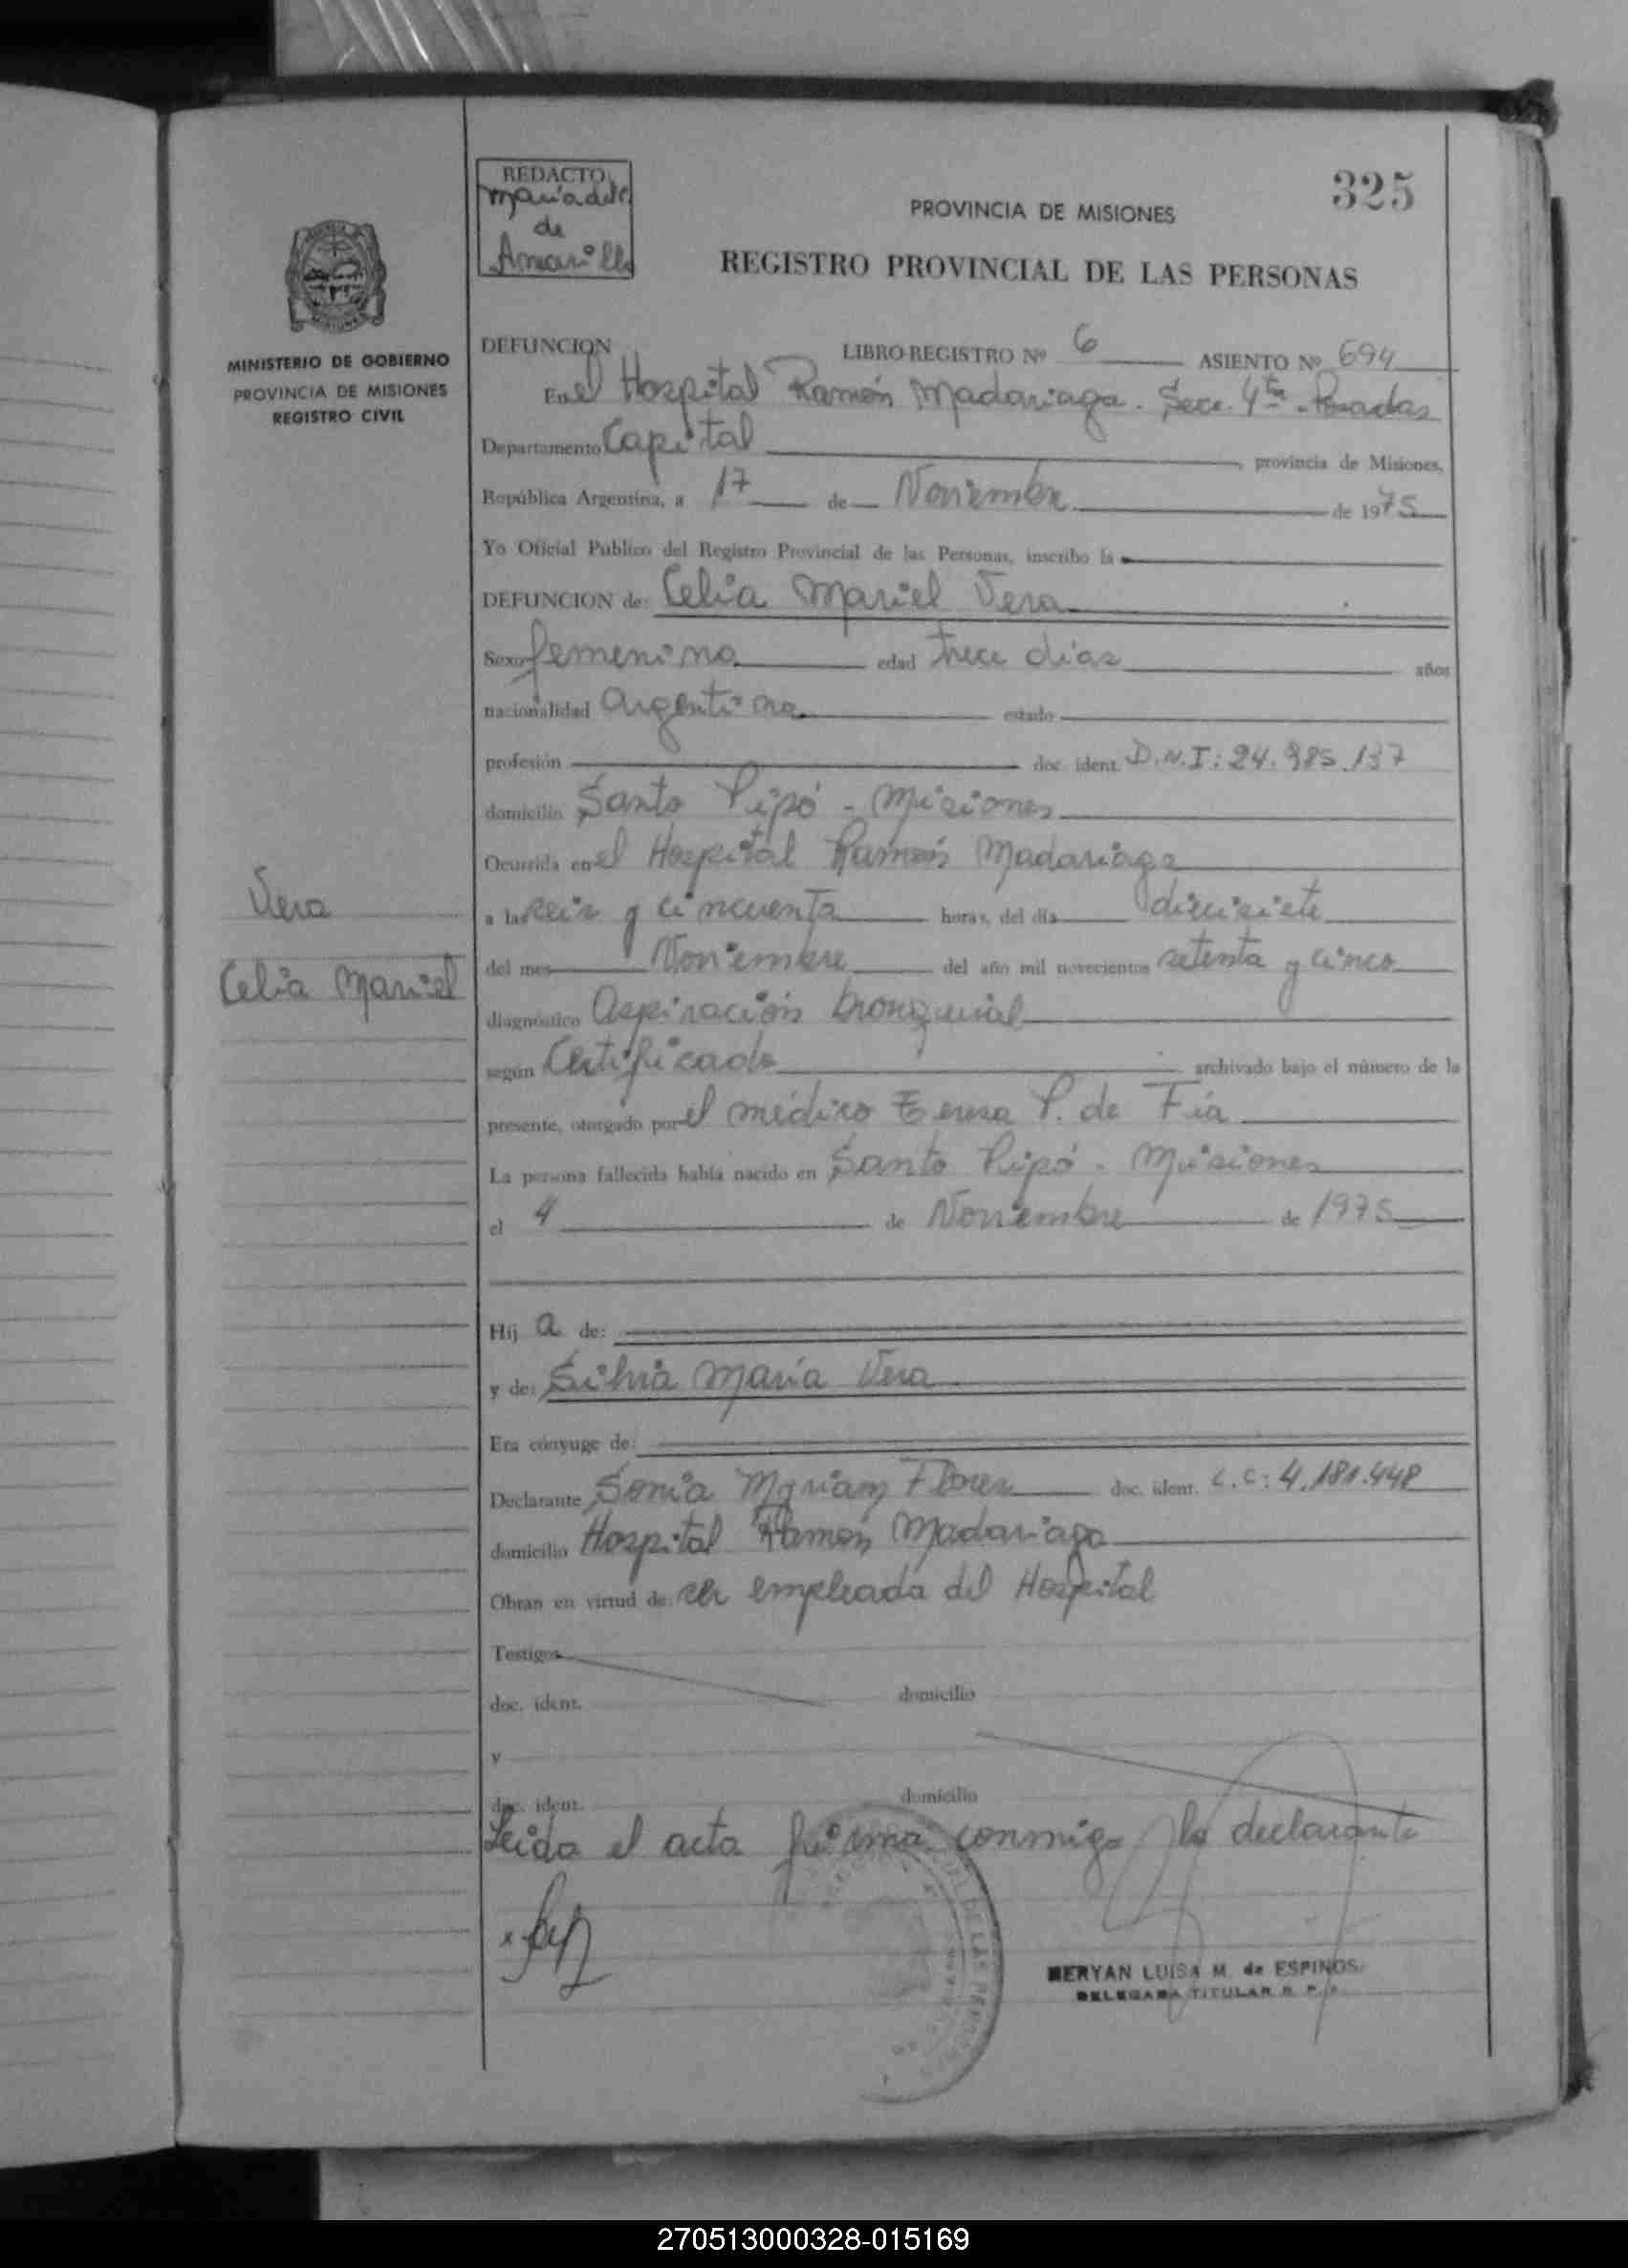 325
REDACTO
de
Amarilla
PROVINCIA DE MISIONES
REGISTRO PROVINCIAL DE LAS PERSONAS
MINISTERIO DE GOBIERNO
PROVINCIA DE MISIONES
REGISTRO CIVIL
DEFUNCION LIBRO-REGISTRO Nº 6 ASIENTO Nº 694
En el Hospital Ramón Madariaga. Secc. 4ta - Posadas
Departamento Capital, provincia de Misiones,
República Argentina, a 17 de Noviembre de 1975
Yo Oficial Público del Registro Provincial de las Personas, inscribo la
DEFUNCION de: Celia Mariel Vera
Sexo femenino edad trece días años
nacionalidad Argentina estado
profesión doc. ident. D.N.I: 24.985.137
domicilio Santo Pipó - Misiones
Ocurrida en el Hospital Ramón Madariaga
a las seis y cincuenta horas, del día diecisiete
del mes Noviembre del año mil novecientos setenta y cinco
diagnóstico Aspiración bronquial
según Certificado archivado bajo el número de la
presente, otorgado por el médico Teresa P. de Fía
La persona fallecida había nacido en Santo Pipó - Misiones
el 4 de Noviembre de 1975
Vera
Celia Mariel
Hij a de:
y de: Silvia María Vera
Era cónyuge de:
Declarante Sonia Myriam Flores doc. ident. L.C: 4.181.448
domicilio Hospital Ramón Madariaga
Obran en virtud de ser empleada del Hospital
Testigos
doc. ident. domicilio
y
doc. ident. domicilio
Leída el acta firma conmigo la declarante
MERYAN LUISA M. de ESPINOS
DELEGADA TITULAR R. P. P.
270513000328-015169